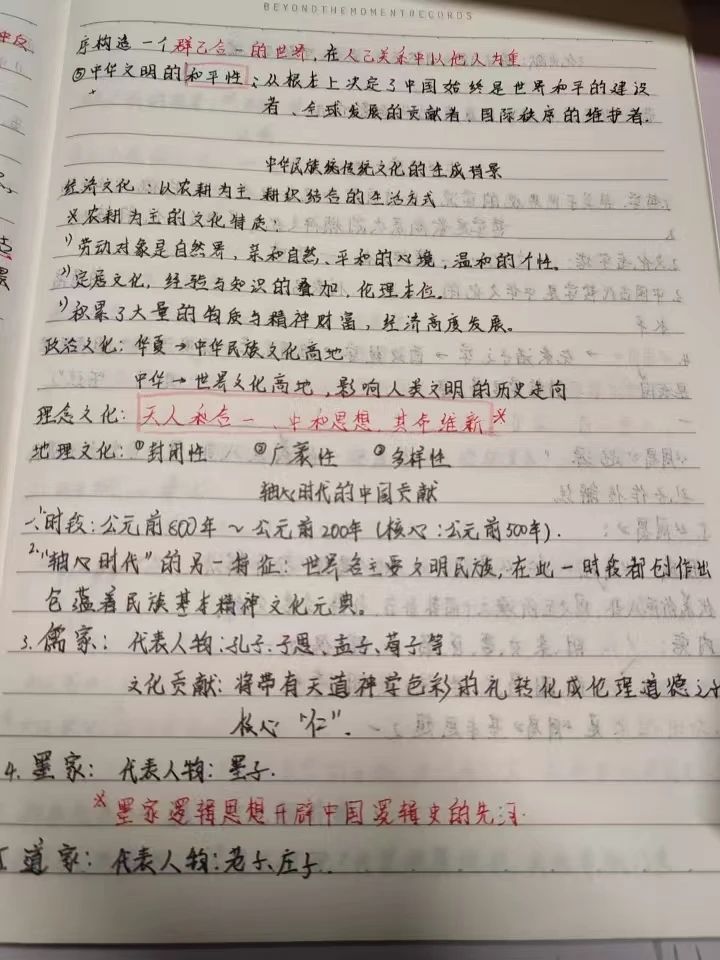 BEYONDTHEMOMENTRECORDS
序构造一个群己合一的世界,在人己关系中以他人为重
⑤中华文明的和平性:从根本上决定了中国始终是世界和平的建设
者、全球发展的贡献者、国际秩序的维护者.
中华民族传统文化的生成背景
经济文化:以农耕为主 耕织结合的生活方式
※农耕为主的文化特质:
1)劳动对象是自然界,亲和自然、平和的心境,温和的个性。
2)定居文化,经验与知识的叠加,伦理本位。
3)积累了大量的物质与精神财富,经济高度发展。
政治文化:华夏→中华民族文化高地
中华→世界文化高地,影响人类文明的历史走向
理念文化:天人和合一、中和思想,其命维新※
地理文化:①封闭性 ②广袤性 ③多样性
轴心时代的中国贡献
一、1.时段:公元前800年~公元前200年(核心:公元前500年).
2."轴心时代"的另一特征:世界各主要文明民族,在此一时段都创作出
包蕴着民族基本精神文化元典。
3.儒家:代表人物:孔子、子思、孟子、荀子等
文化贡献:将带有天道神学色彩的礼转化成伦理道德之
核心"仁".
4.墨家:代表人物:墨子.
※墨家逻辑思想开辟中国逻辑史的先河.
道家:代表人物:老子、庄子.